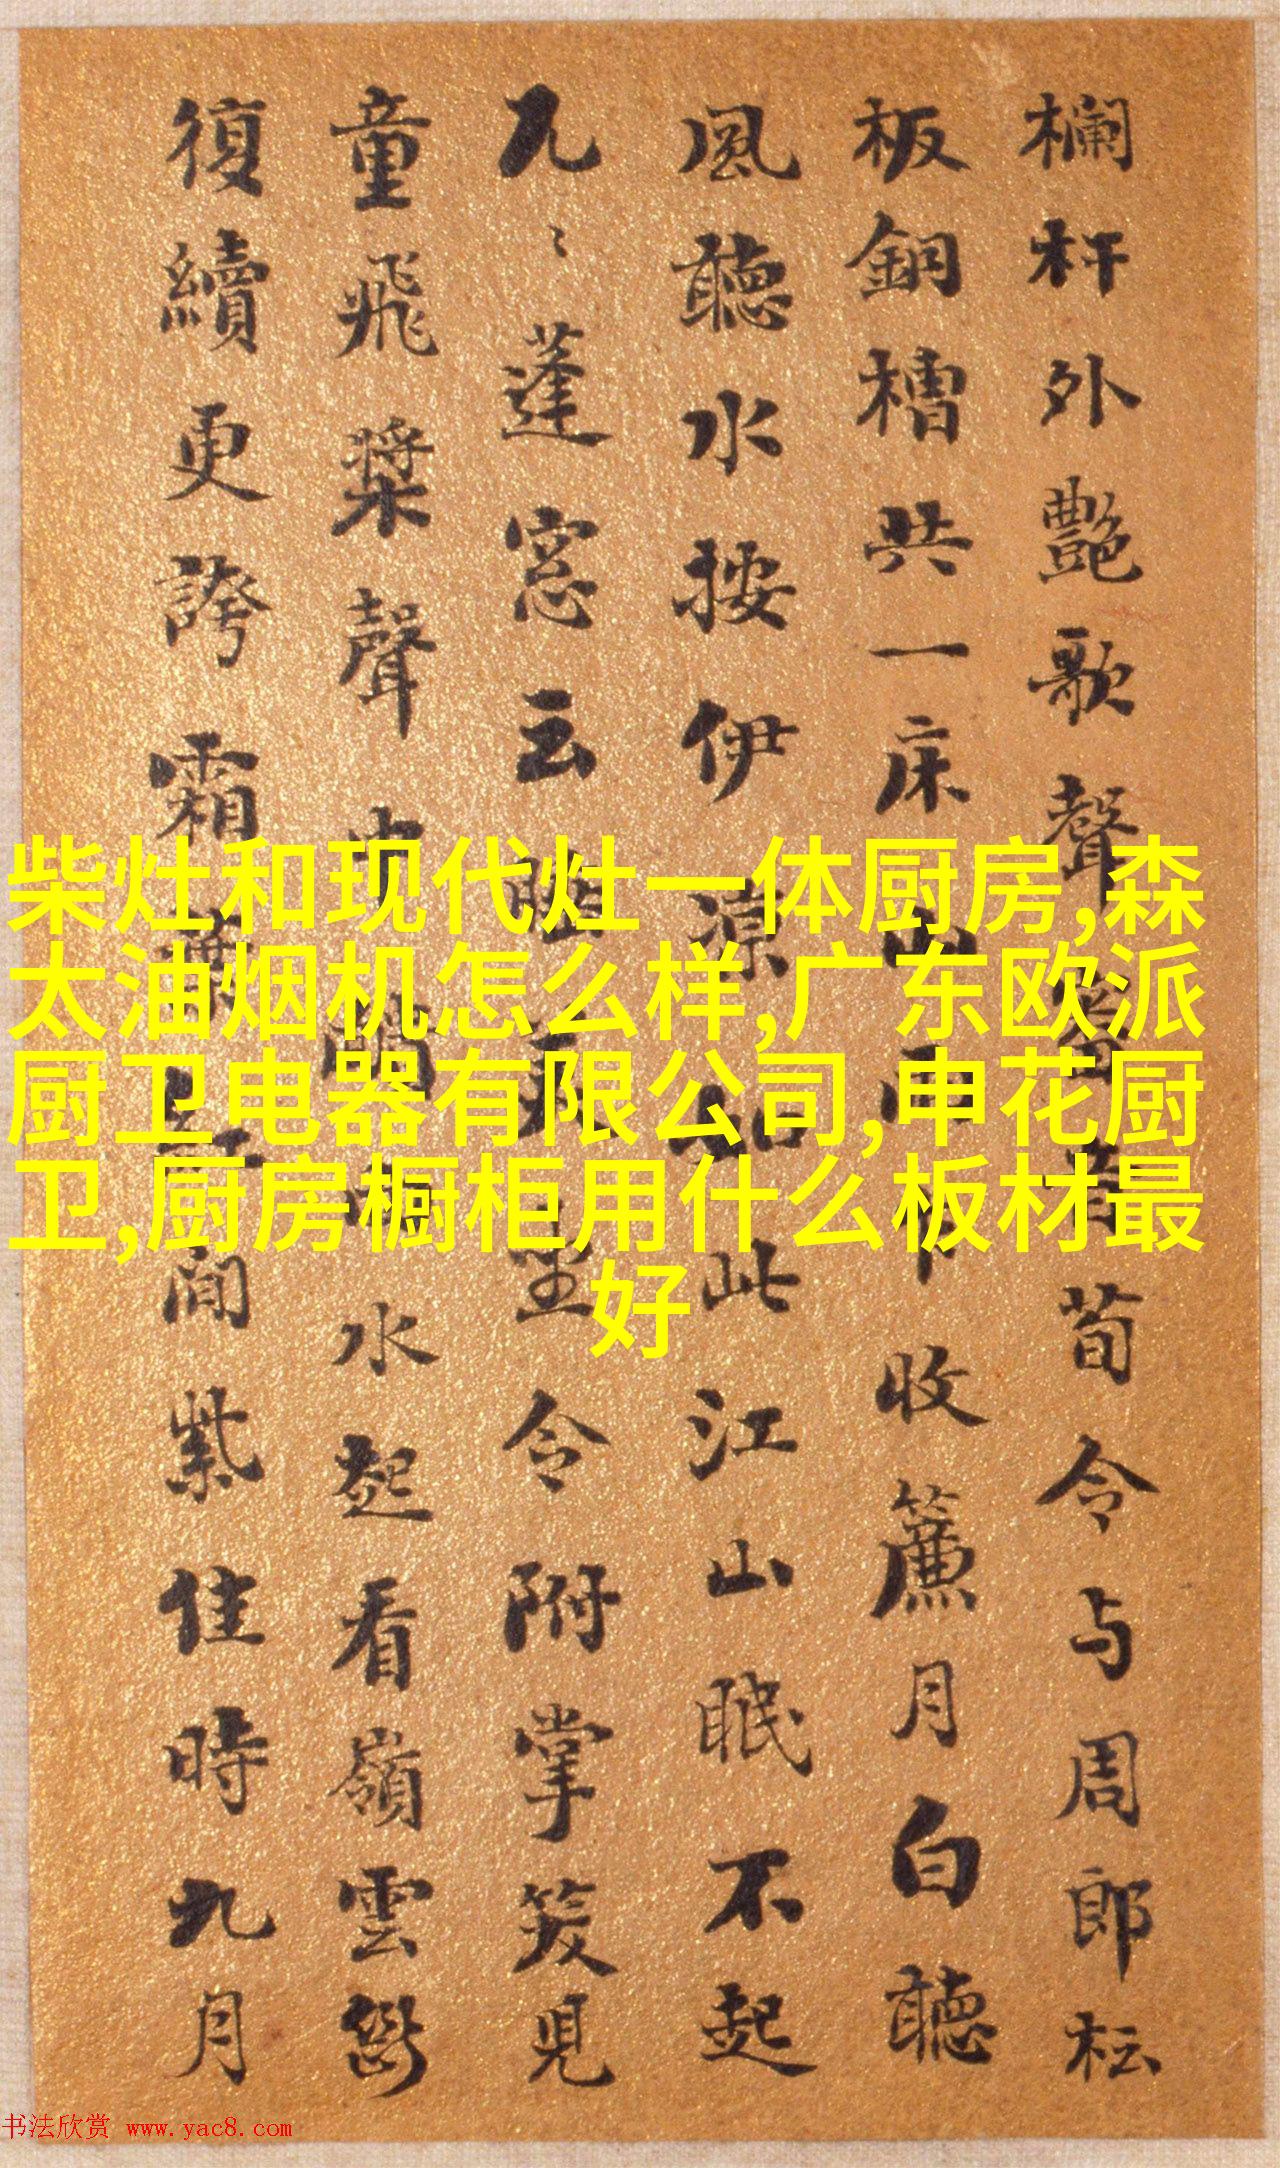 欄杆外艷歌聲荀令与周郎松
板銅槽共一床山雨下收簾月白聽
風聽水按伊涼如此江山眠不起
兀〻蓬窓云坐令附掌笑見
童飛槳聲中水起看嶺雲
復續更誇霜葉紅間紫佳時九月
柴灶和现代灶一体厨房,森
太油烟机怎么样,广东欧派
厨卫电器有限公司,申花厨
卫,厨房橱柜用什么板材最
好
书法欣赏 www.yac8.com